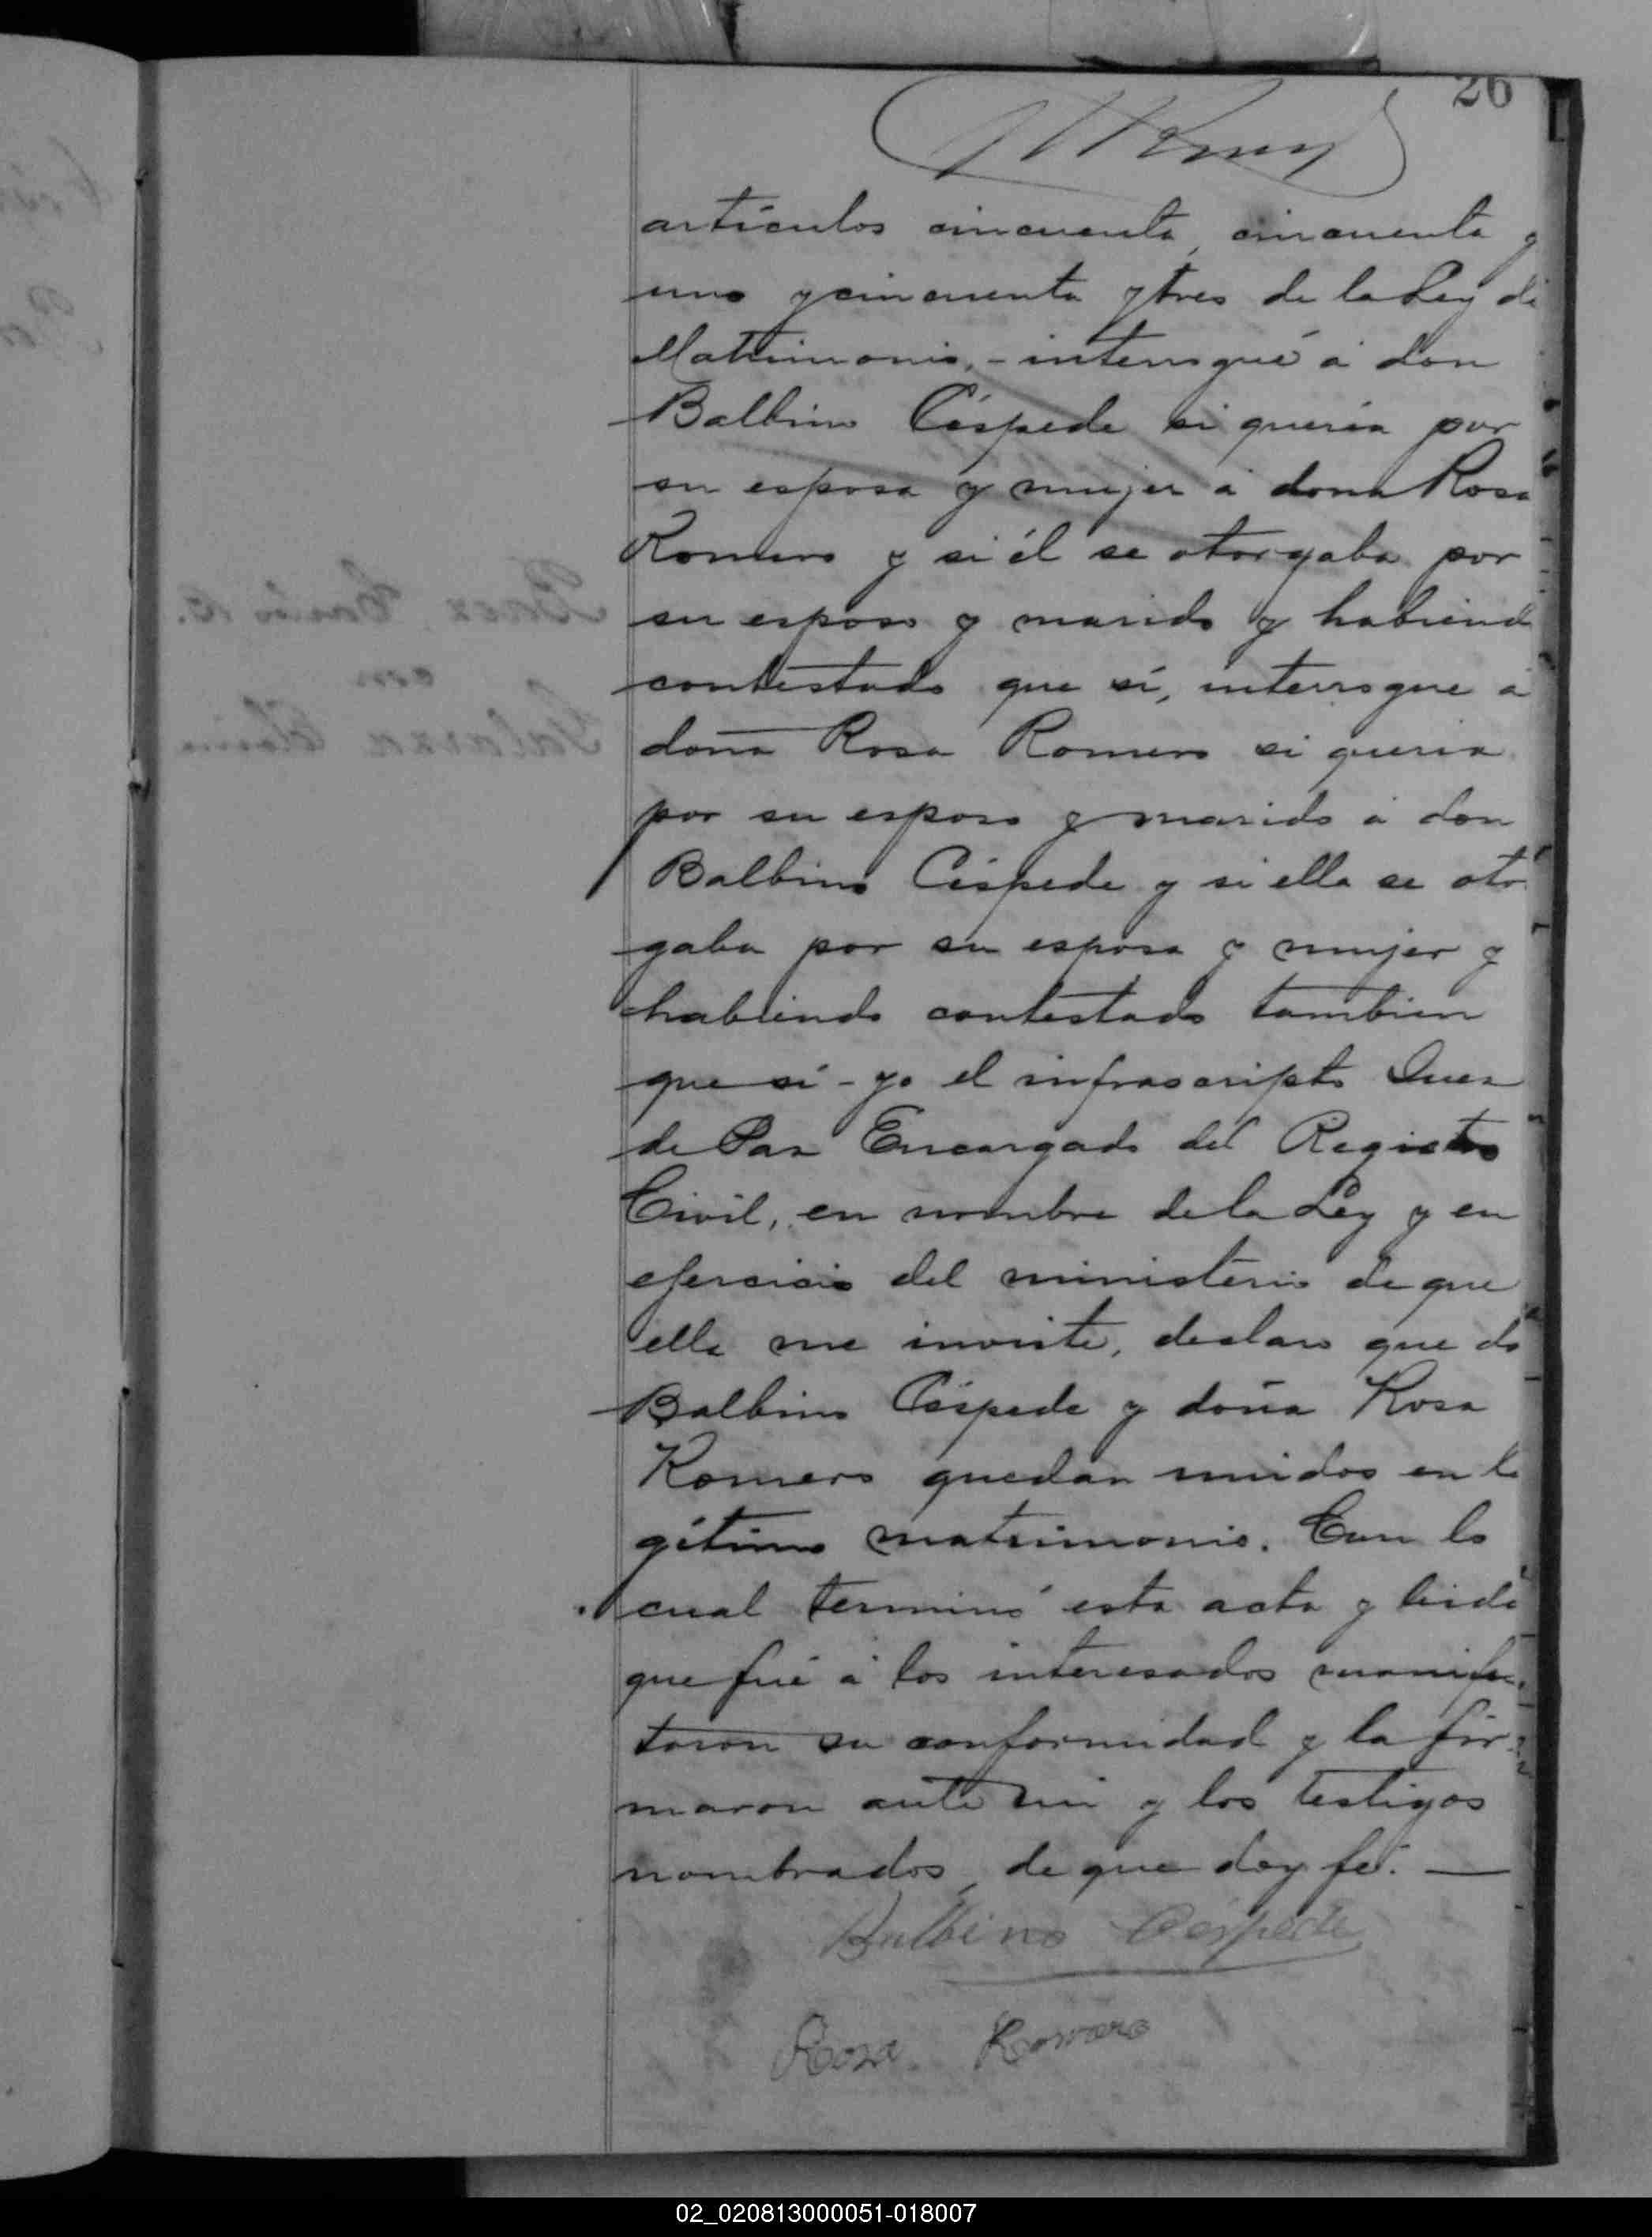 26
artículos cincuenta, cincuenta y
uno y cincuenta y tres de la Ley de
Matrimonio, - interrogué á don
Balbino Céspede si quería por
su esposa y mujer á dona Rosa
Romero y si él se otorgaba por
su esposo y marido y habiend
contestado que sí, interrogue á
doña Rosa Romero si queria
por su esposo y marido á don
Balbino Céspede y si ella se otor
gaba por su esposa y mujer y
habiendo contestado tambien
que sí - yo el infrascripto Juez
de Paz Encargado del Registro
Civil, en nombre de la Ley y en
ejercicio del ministerio de que
ella me inviste, declaro que do
Balbino Céspede y doña Rosa
Romero quedan unidos en le
gítimo matrimonio. Con lo
cual terminó esta acta y leida
que fué á los interesados manifes
taron su conformidad y la fir-
maron ante mi y los testigos
nombrados, de que doy fé. —
Balbino Céspede
Rosa Romero
02_020813000051-018007